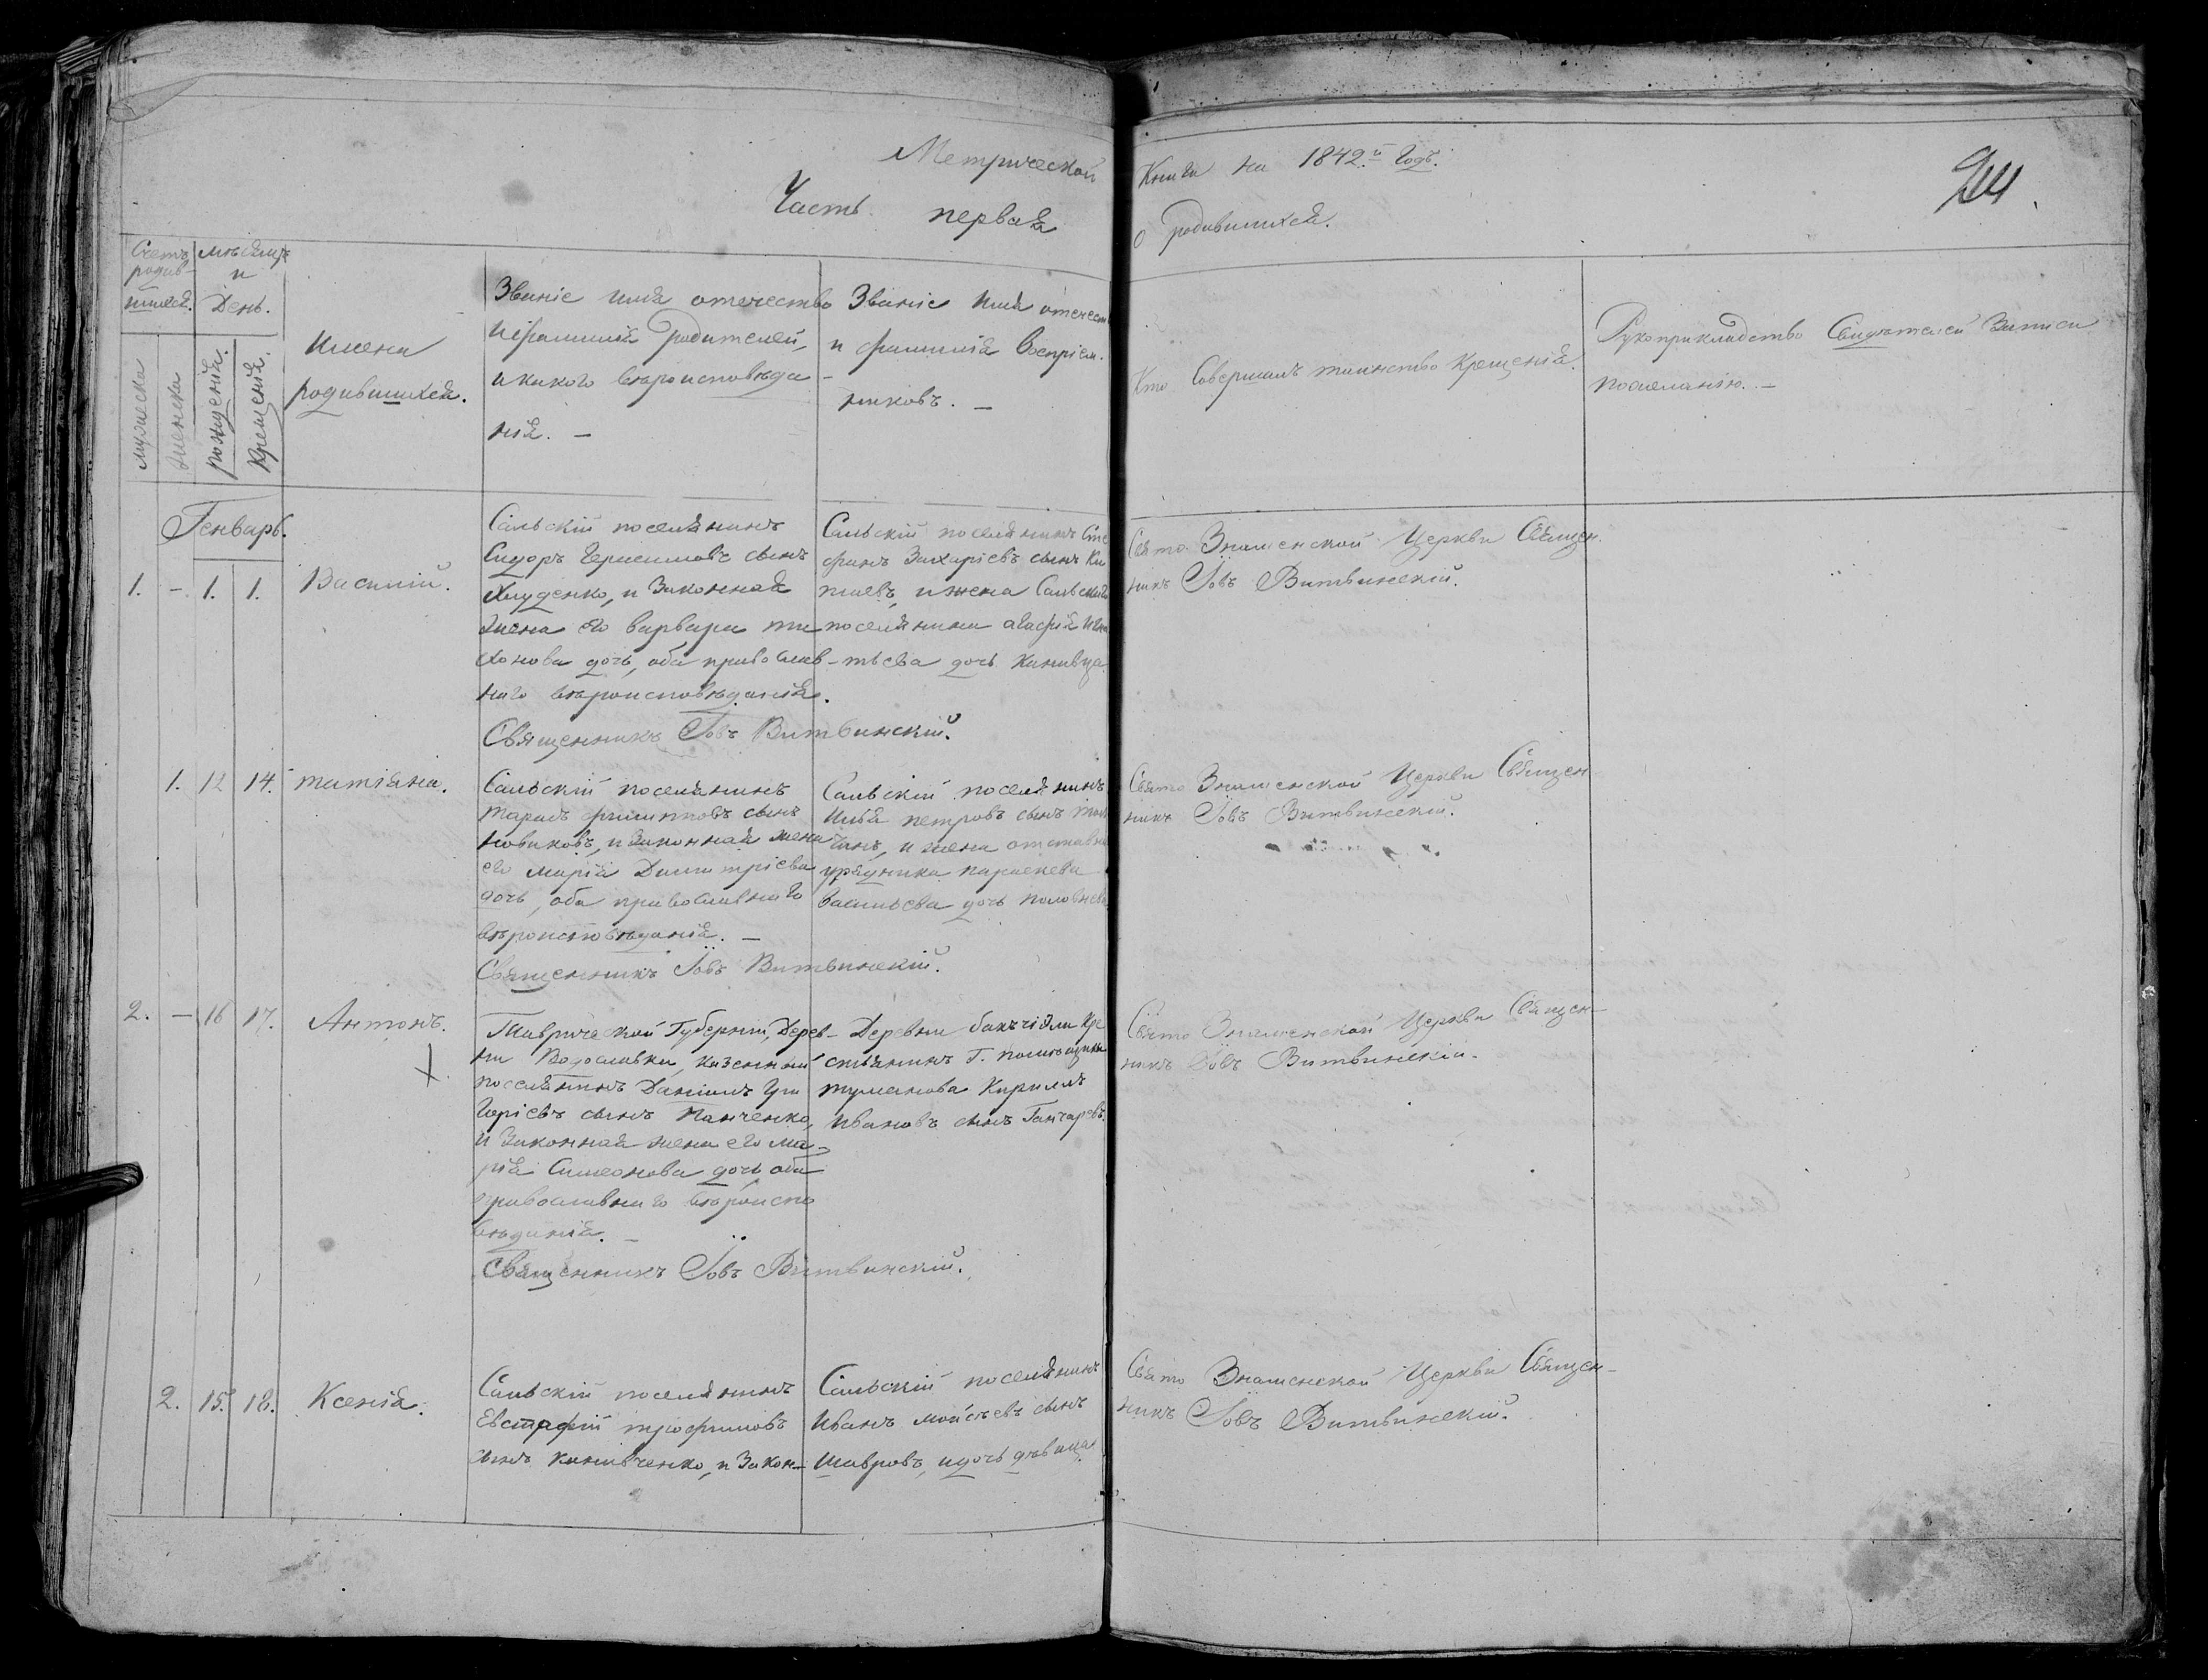 Метрической Книги на 1842.й Годъ.
Часть первая о родившихся.
Счетъ родив-
шихся.
мѣсяцъ
и
День.
мужеска
женска
рожденія.
Крещенія.
Имена
родившихся.
Званіе имя отечество
и фамилія Родителей,
и какого вѣроисповѣда-
нія. —
Званіе имя отечест
и фамилія Воспріем-
никовъ. —
Кто Совершалъ таинство Крещенія.
Рукоприкладство Свидѣтелей Записи
по желанію. —
Генварь.
1. - 1. 1. Василій.
Сальскій поселянинъ
Сидоръ Герасимовъ сынъ
Хлуденко, и Законная
жена его варвара ти
хонова дочь, оба православ-
наго вѣроисповѣданія.
Священникъ Іовъ Витвинскій.
Сальскій поселянинъ Сте
фанъ Захаріевъ сынъ Ки
, и жена Сальскаго
поселянина агафія Игна
тьева дочь
Свято Знаменской Церкви Священ-
никъ Іовъ Витвинскій.
1. 12 14. татіана.
Сальскій поселянинъ
тарасъ филипповъ сынъ
новиковъ, и Законная жена
его марія Димитріева
дочь, оба православнаго
вѣроисповѣданія. —
Священникъ Іовъ Витвинскій.
Сальскій поселянинъ
Илья петровъ сынъ
, и жена отставна
урядника параскева
васильева дочь
Свято Знаменской Церкви Священ-
никъ Іовъ Витвинскій.
2. — 16 17. Антонъ.
Таврической Губерніи, Дерев-
ни Водославки, казенный
поселянинъ Даніилъ Гри
горіевъ сынъ Панченко,
и Законная жена его ма-
рія Симеонова дочь, оба
православнаго вѣроиспо
вѣданія. —
Священникъ Іовъ Витвинскій.
Деревни Кре
стьянинъ Г. помѣщика
туманова Кирилъ
Ивановъ сынъ Ганчаревъ.
Свято Знаменской Церкви Священ-
никъ Іовъ Витвинскій.
2. 15. 18. Ксенія.
Сальскій поселянинъ
Евстафій трофимовъ
сынъ канивченко, и Закон-
Сальскій поселянинъ
Иванъ мойсѣевъ сынъ
Шавровъ, и дочь дѣвица
Свято Знаменской Церкви Священ-
никъ Іовъ Витвинскій.